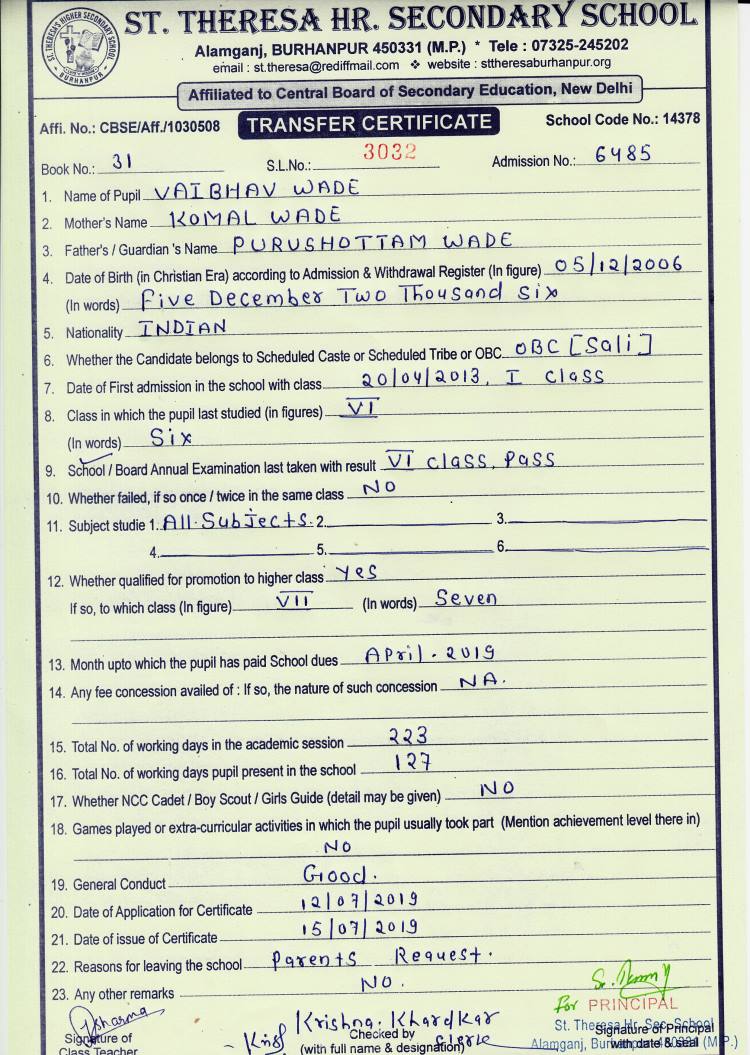 ST. THERESA'S HIGHER SECONDARY SCHOOL
BURHANPUR
ST. THERESA HR. SECONDARY SCHOOL
Alamganj, BURHANPUR 450331 (M.P.) * Tele : 07325-245202
email : st.theresa@rediffmail.com ❖ website : sttheresaburhanpur.org
Affiliated to Central Board of Secondary Education, New Delhi
Affi. No.: CBSE/Aff./1030508 TRANSFER CERTIFICATE School Code No.: 14378
Book No.: 31 S.L.No.: 3032 Admission No.: 6485
1. Name of Pupil VAIBHAV WADE
2. Mother's Name KOMAL WADE
3. Father's / Guardian 's Name PURUSHOTTAM WADE
4. Date of Birth (in Christian Era) according to Admission & Withdrawal Register (In figure) 05/12/2006
(In words) Five December Two Thousand Six
5. Nationality INDIAN
6. Whether the Candidate belongs to Scheduled Caste or Scheduled Tribe or OBC OBC [Sali]
7. Date of First admission in the school with class 20/04/2013, I Class
8. Class in which the pupil last studied (in figures) VI
(In words) Six
9. School / Board Annual Examination last taken with result VI Class, Pass
10. Whether failed, if so once / twice in the same class NO
11. Subject studie 1. All Subjects 2. 3.
4. 5. 6.
12. Whether qualified for promotion to higher class Yes
If so, to which class (In figure) VII (In words) Seven
13. Month upto which the pupil has paid School dues April - 2019
14. Any fee concession availed of : If so, the nature of such concession NA.
15. Total No. of working days in the academic session 223
16. Total No. of working days pupil present in the school 127
17. Whether NCC Cadet / Boy Scout / Girls Guide (detail may be given) NO
18. Games played or extra-curricular activities in which the pupil usually took part (Mention achievement level there in)
NO
19. General Conduct Good.
20. Date of Application for Certificate 12/07/2019
21. Date of issue of Certificate 15/07/2019
22. Reasons for leaving the school Parents Request.
23. Any other remarks NO.
For PRINCIPAL
Sharma Krishna. Khardkar St. Theresa Hr. Sec. School
Signature of Checked by Clerk Signature of Principal
Class Teacher (with full name & designation) Alamganj, Burhanpur 450331 (M.P.)
with date & seal